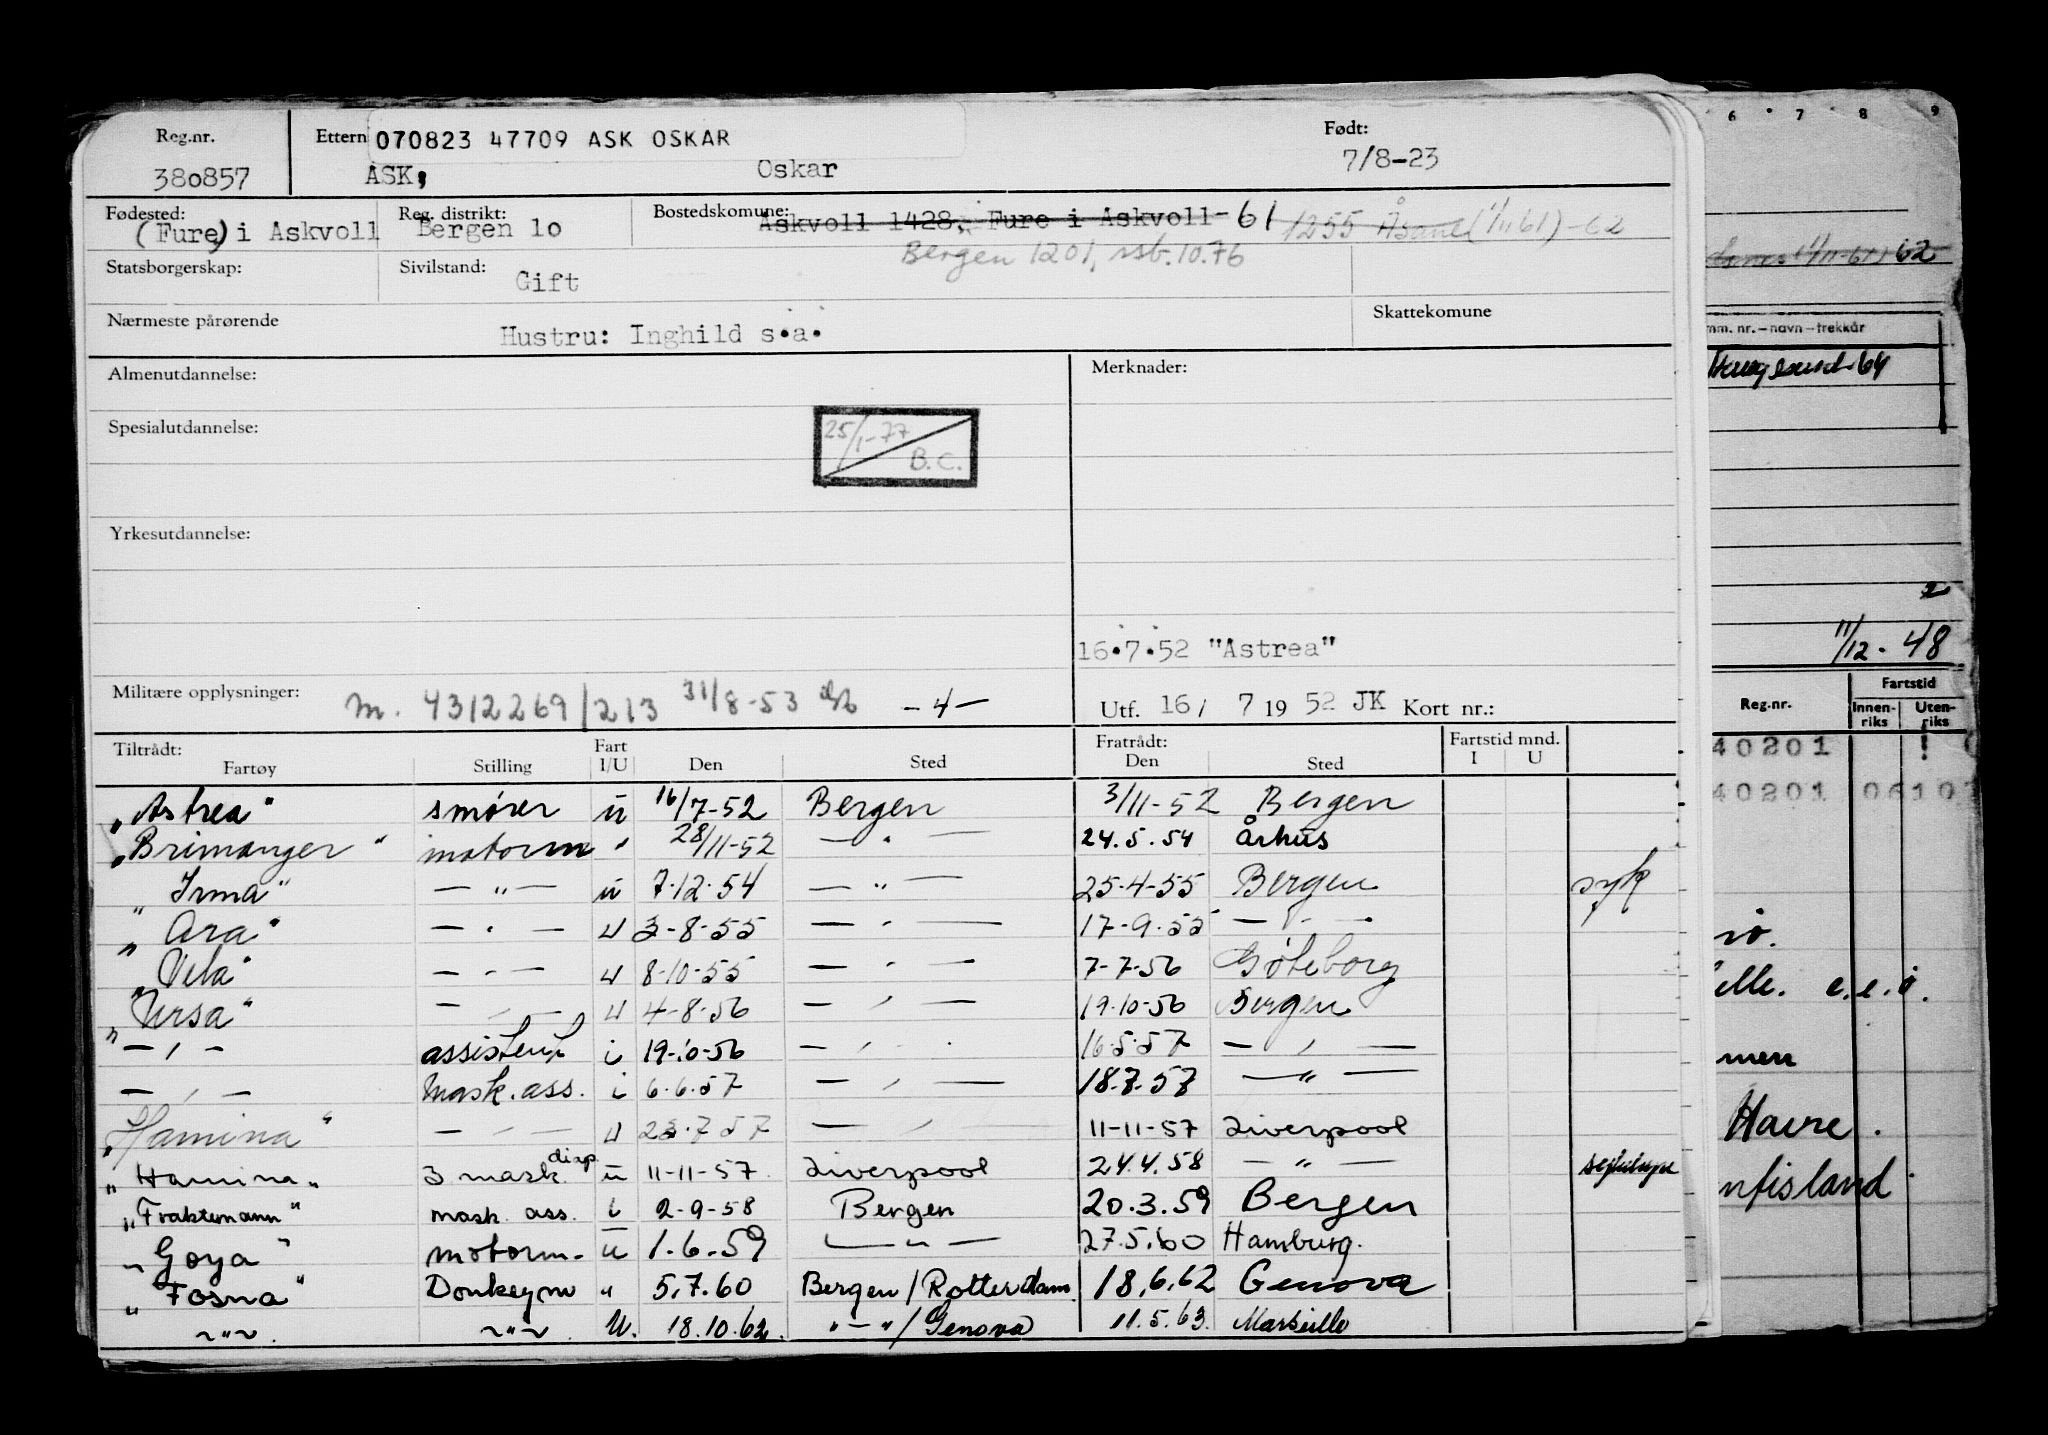 Reg.nr. Ettern 070823 47709 ASK OSKAR Født:
380857 ASK, Oskar 7/8-23
Fødested: Reg. distrikt: Bostedskomune:
(Fure) i Askvoll Bergen 10 Askvoll 1428, Fure i Askvoll-61 1255 Åsane (1/11 61)-62
Bergen 1201, 10.76
Statsborgerskap: Sivilstand:
Gift
Nærmeste pårørende Skattekomune
Hustru: Inghild s.a.
Almenutdannelse: Merknader:
Spesialutdannelse: 25/1-77
B.C.
Yrkesutdannelse:
16.7.52 "Astrea"
Militære opplysninger: m. 4312269/213 31/8-53 -4- Utf. 16/ 7 19 52 JK Kort nr.:
Tiltrådt: Fart Fratrådt: Fartstid mnd.
Fartøy Stilling I/U Den Sted Den Sted I U
„Astrea" smører u 16/7-52 Bergen 3/11-52 Bergen
„Brimanger" motorm " 28/11-52 — " — 24.5.54 Århus
„Irma" — " — u 7.12.54 — " — 25-4-55 Bergen syk
„Ara" — " — u 3-8-55 — " — 17-9-55 — " —
„Vela" — " — u 8-10-55 — " — 7-7-56 Göteborg
„Ursa" — " — u 4-8-56 — " — 19.10-56 Bergen
— " — assistent i 19-10-56 — " — 16.5.57 — " —
— " — Mask. ass. i 6.6.57 — " — 18.7.57 — " —
„Hamina" — " — u 23.7.57 — " — 11-11-57 Liverpool
„Hamina" 3 mask. disp. u 11-11-57. Liverpool 24.4.58 — " —
„Fraktemann" mask. ass. i 2-9-58 Bergen 20.3.59 Bergen
„Goya" motorm. u 1.6.59 — " — 27.5.60 Hamburg.
„Fosna" Donkeym " 5.7.60 Bergen/Rotterdam 18.6.62 Genova
— " — — " — U. 18.10.62. " — "/Genova 11.5.63. Marseille
6 7 8 9
62
mm. nr. – navn – trekkår
Haugesund-64
2
11/12. 48
Reg.nr. Fartstid
Innen-riks Uten-riks
40201
40201
e.e.ö.
Havre.